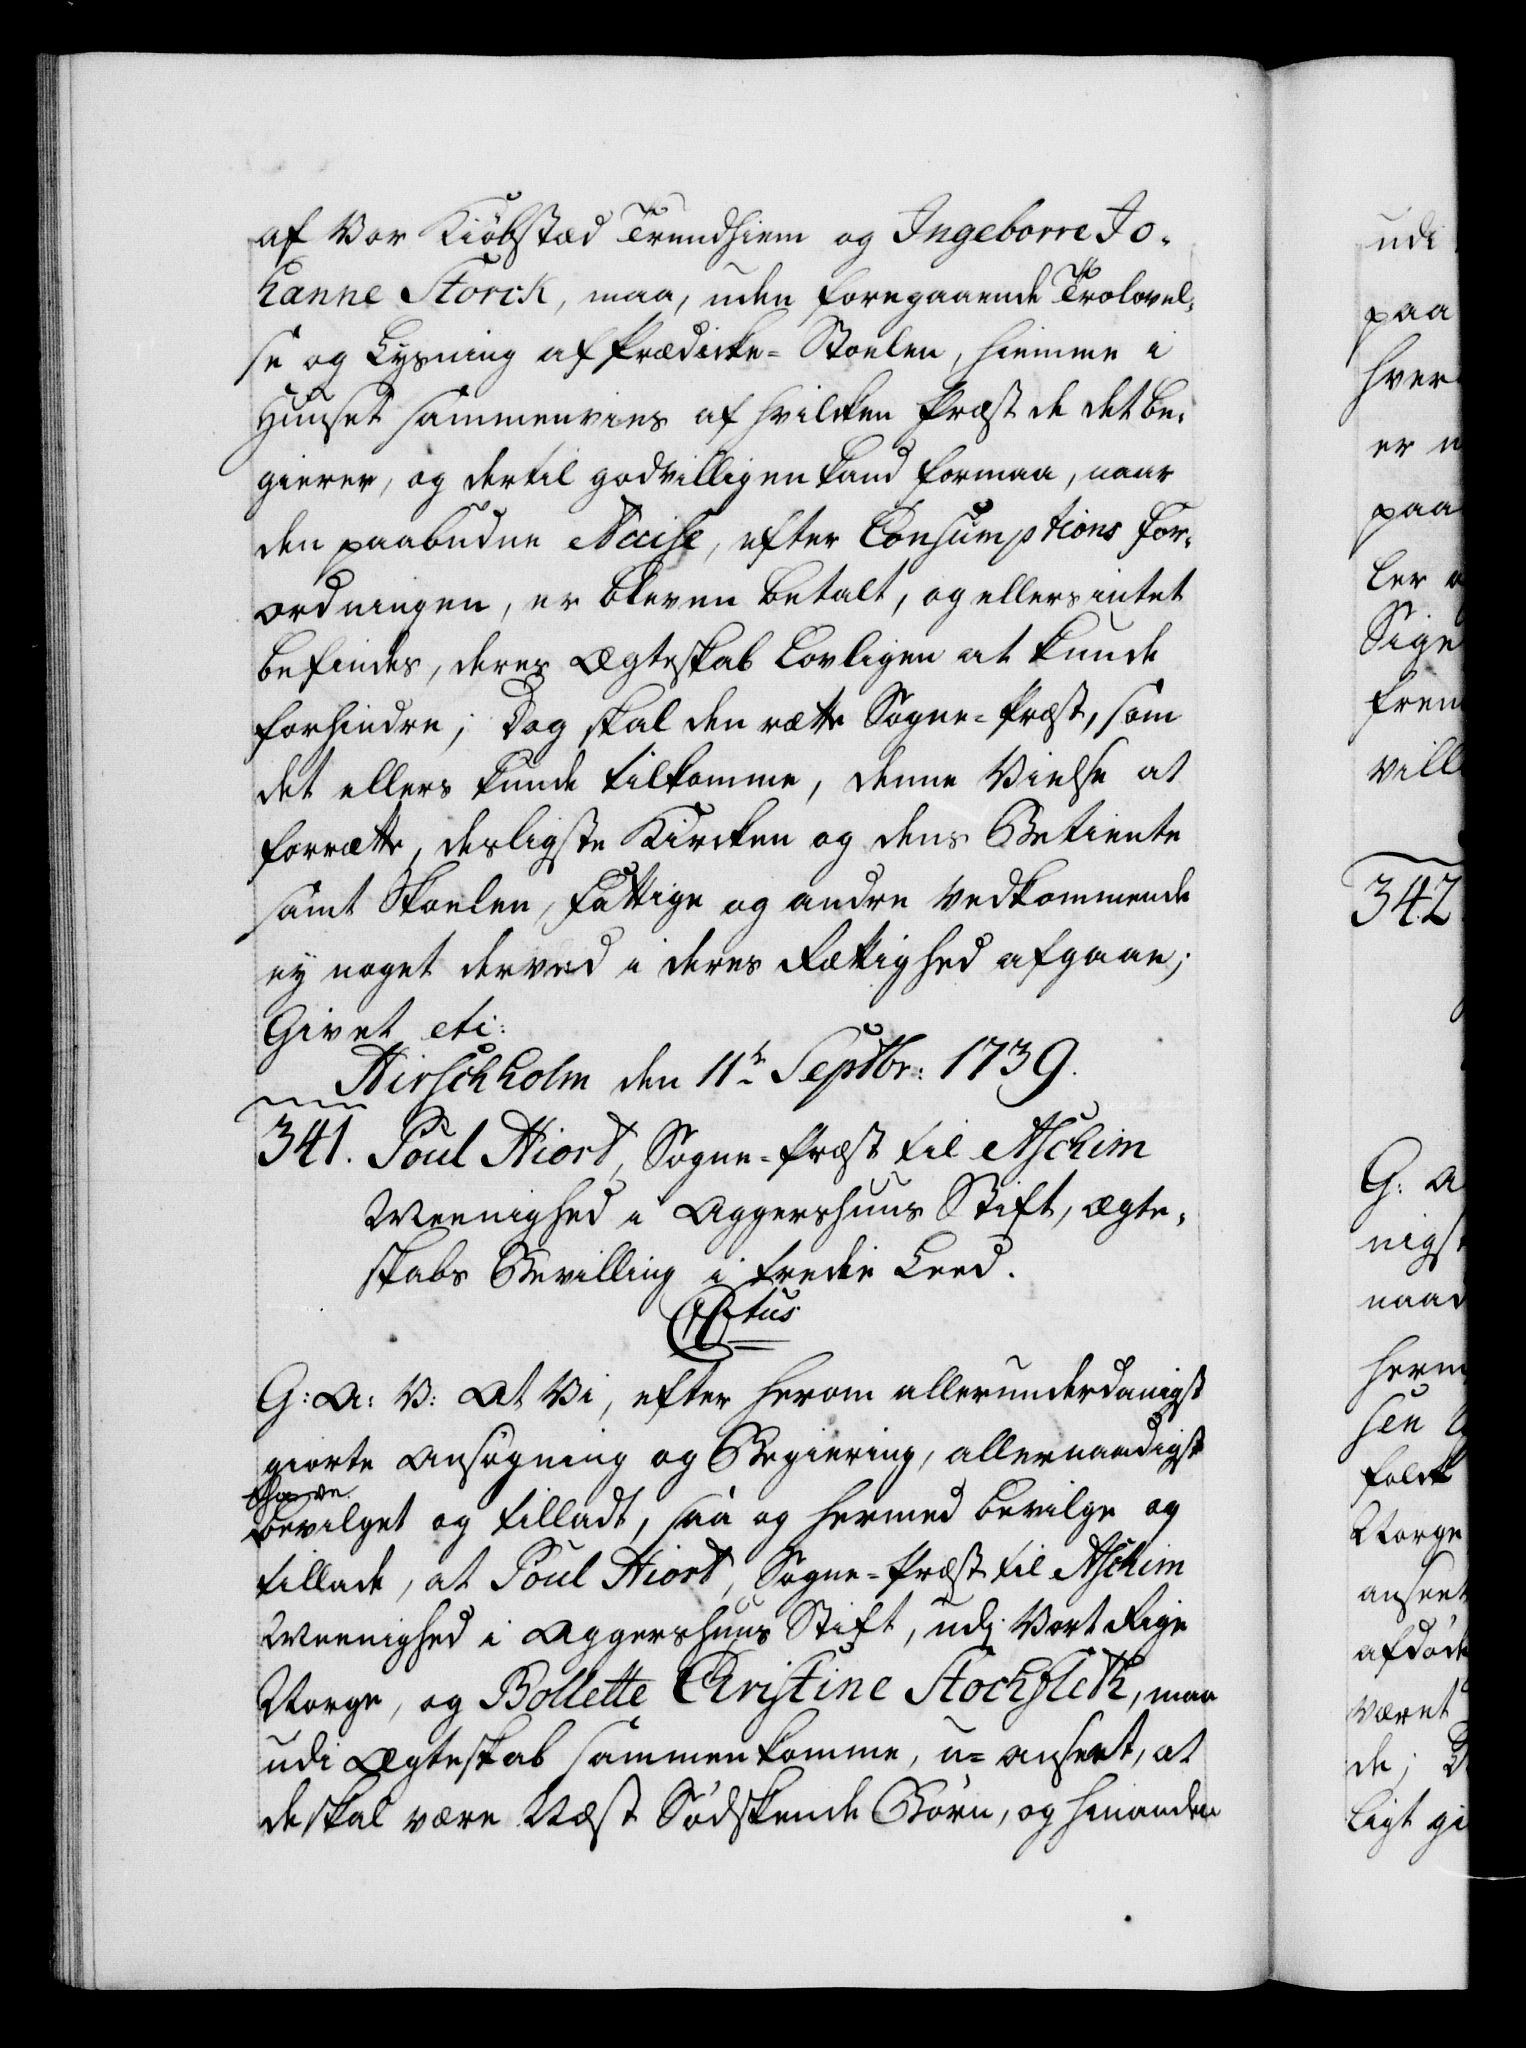 af Vor Kiöbstæd Trundhiem og Ingeborre Jo-
hanne Storck, maa, uden foregaaende Trolovel-
se og Lysning af Prædicke-Stoelen, hiemme i
Huuset sammenvies af hvilcken Præst de det be-
gierer, og dertil godvilligen kand formaa, naar
den paabudne Accise, efter Consumptions For-
ordningen, er bleven betalt, og ellers intet
befindes, deres Ægteskab Lovligen at kunde
forhindre; Dog skal den rætte Sogne-Præst, som
det ellers kunde tilkomme, denne Vielse at
forrætte, desligste Kircken og dens Betiente
samt Skoelen, Fattige og andre Vedkommende
ey noget derved i deres Rættighed afgaae;
Givet etc:
Hirschholm den 11te Septbr: 1739.
341. Poul Hiort, Sogne-Præst til Aschim
Meenighed i Aggershuus Stift, Ægte-
skabs Bevilling i tredie Leed.
Citus
G: A: V: At Vi, efter herom allerunderdanigst
giorte Ansøgning og Begiering, allernaadigst
have
bevilget og tilladt, saa og hermed bevilge og
tillade, at Poul Hiort, Sogne-Præst til Aschim
Meenighed i Aggershuus Stift, udj Vort Rige
Norge, og Bollette Christine Stochfleth, maa
udi Ægteskab sammenkomme, u-anseet, at
de skal være Næst Södskende Börn, og hinanden
udi
paa
hver
er
paa
ler
Sige
frem
vill
342
G: A
nigst
naad
herm
sen
folck
Norge
anseet
afdöde
været
de;
ligt gi